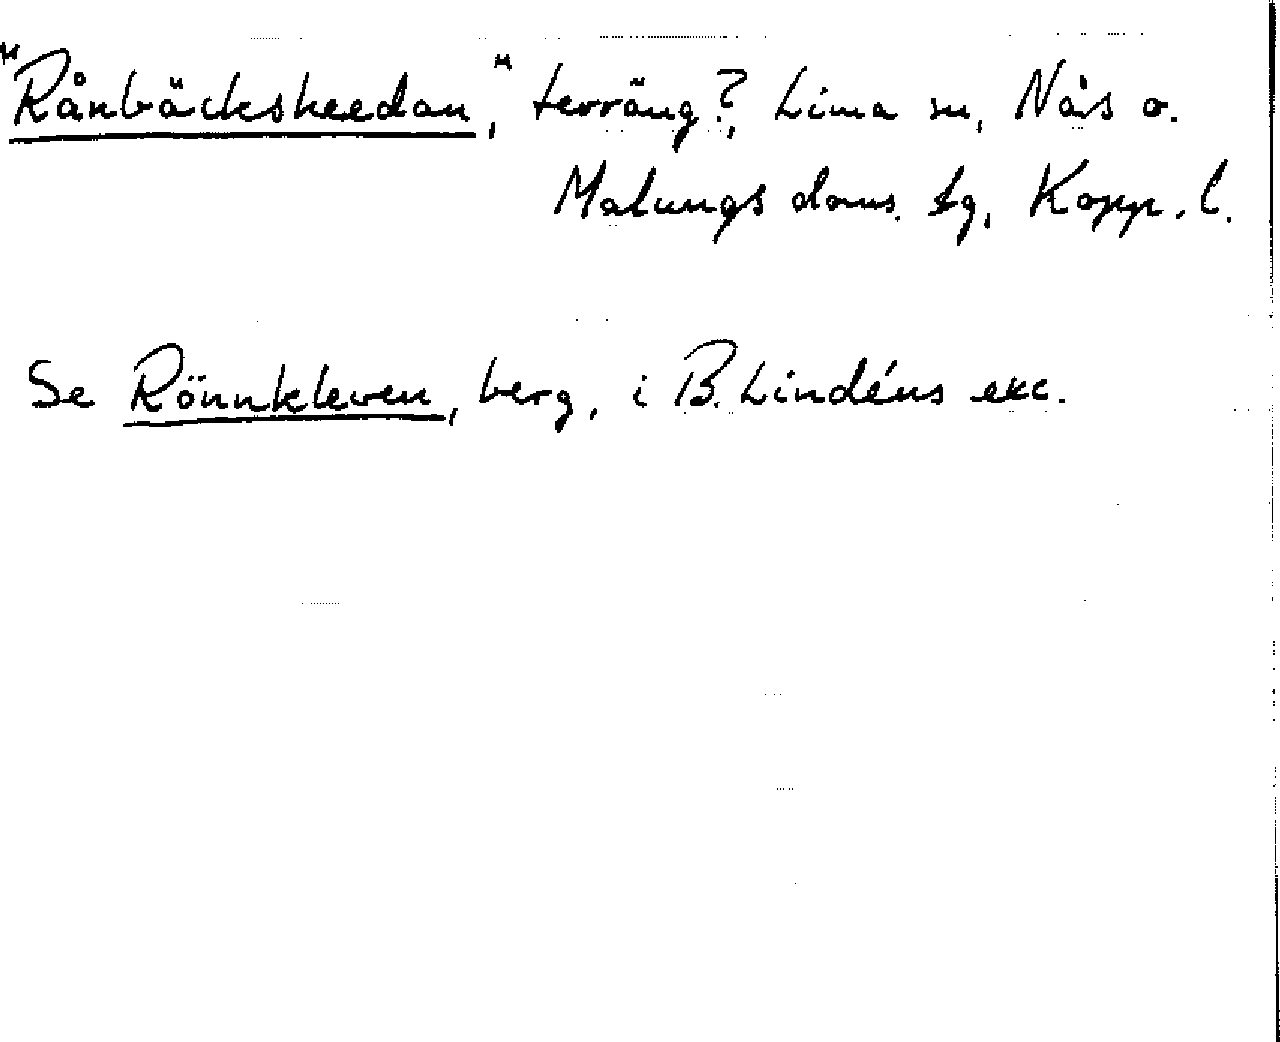 "Rånbäcksheedan," terräng?, Lima sn, Nås o.
Malungs doms. tg, Kopp. l.
Se Rönnkleven, berg, i B. Lindéns exc.